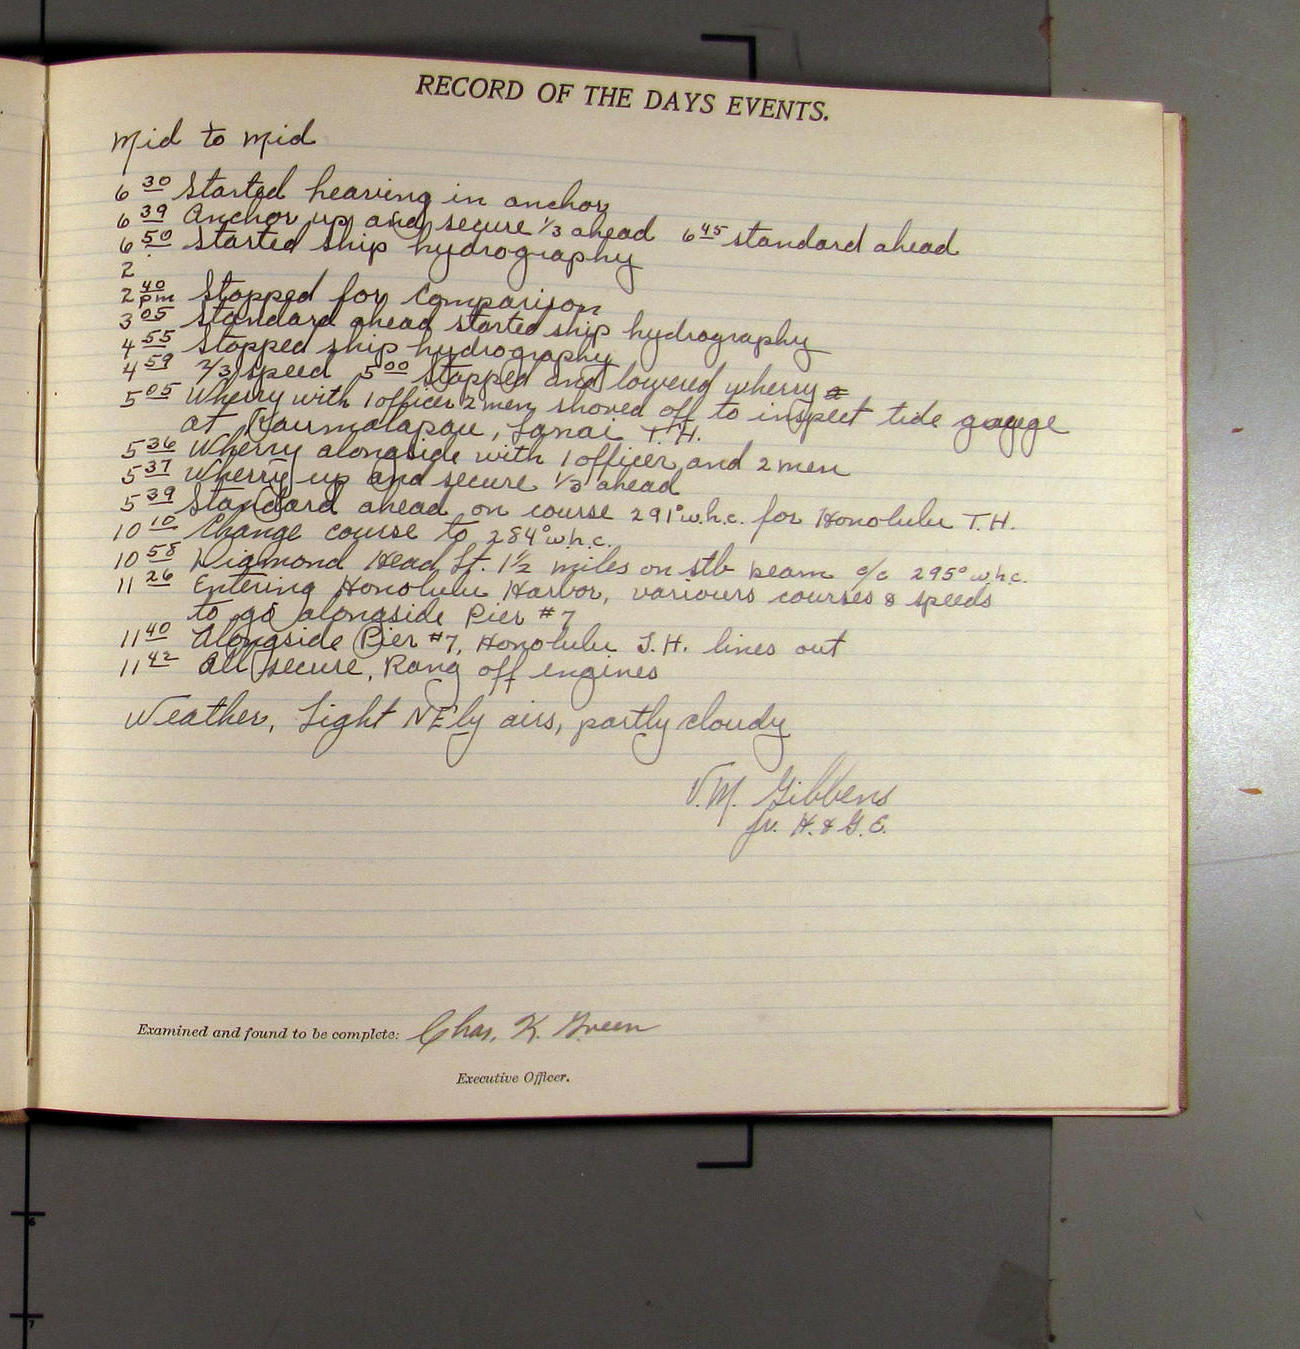 RECORD OF THE DAYS EVENTS.
Mid to Mid
6 30 Started heaving in anchor
6 39 Anchor up and secure 1/3 ahead 6 45 standard ahead
6 50 Started ship hydrography
2
2 40 pm Stopped for Comparison
3 05 Standard ahead started ship hydrography
4 55 Stopped ship hydrography
4 59 2/3 speed 5 00 stopped and lowered wherry
5 05 Wherry with 1 officer 2 men shoved off to inspect tide gauge
at Kaumalapau, Lanai T.H.
5 36 Wherry alongside with 1 officer and 2 men
5 37 Wherry up and secure 1/3 ahead
5 39 Standard ahead on course 291° w.h.c. for Honolulu T.H.
10 10 Change course to 284° w.h.c.
10 58 Diamond Head Lt. 1 1/2 miles on stb beam c/c 295° w.h.c.
11 26 Entering Honolulu Harbor, variours courses & speeds
to go alongside Pier #7
11 40 Alongside Pier #7, Honolulu T.H. lines out
11 42 All secure, Rang off engines
Weather, Light NE'ly airs, partly cloudy
V.M. Gibbens
Jr. H. & G.E.
Examined and found to be complete: Chas. K. Green
Executive Officer.
6
7